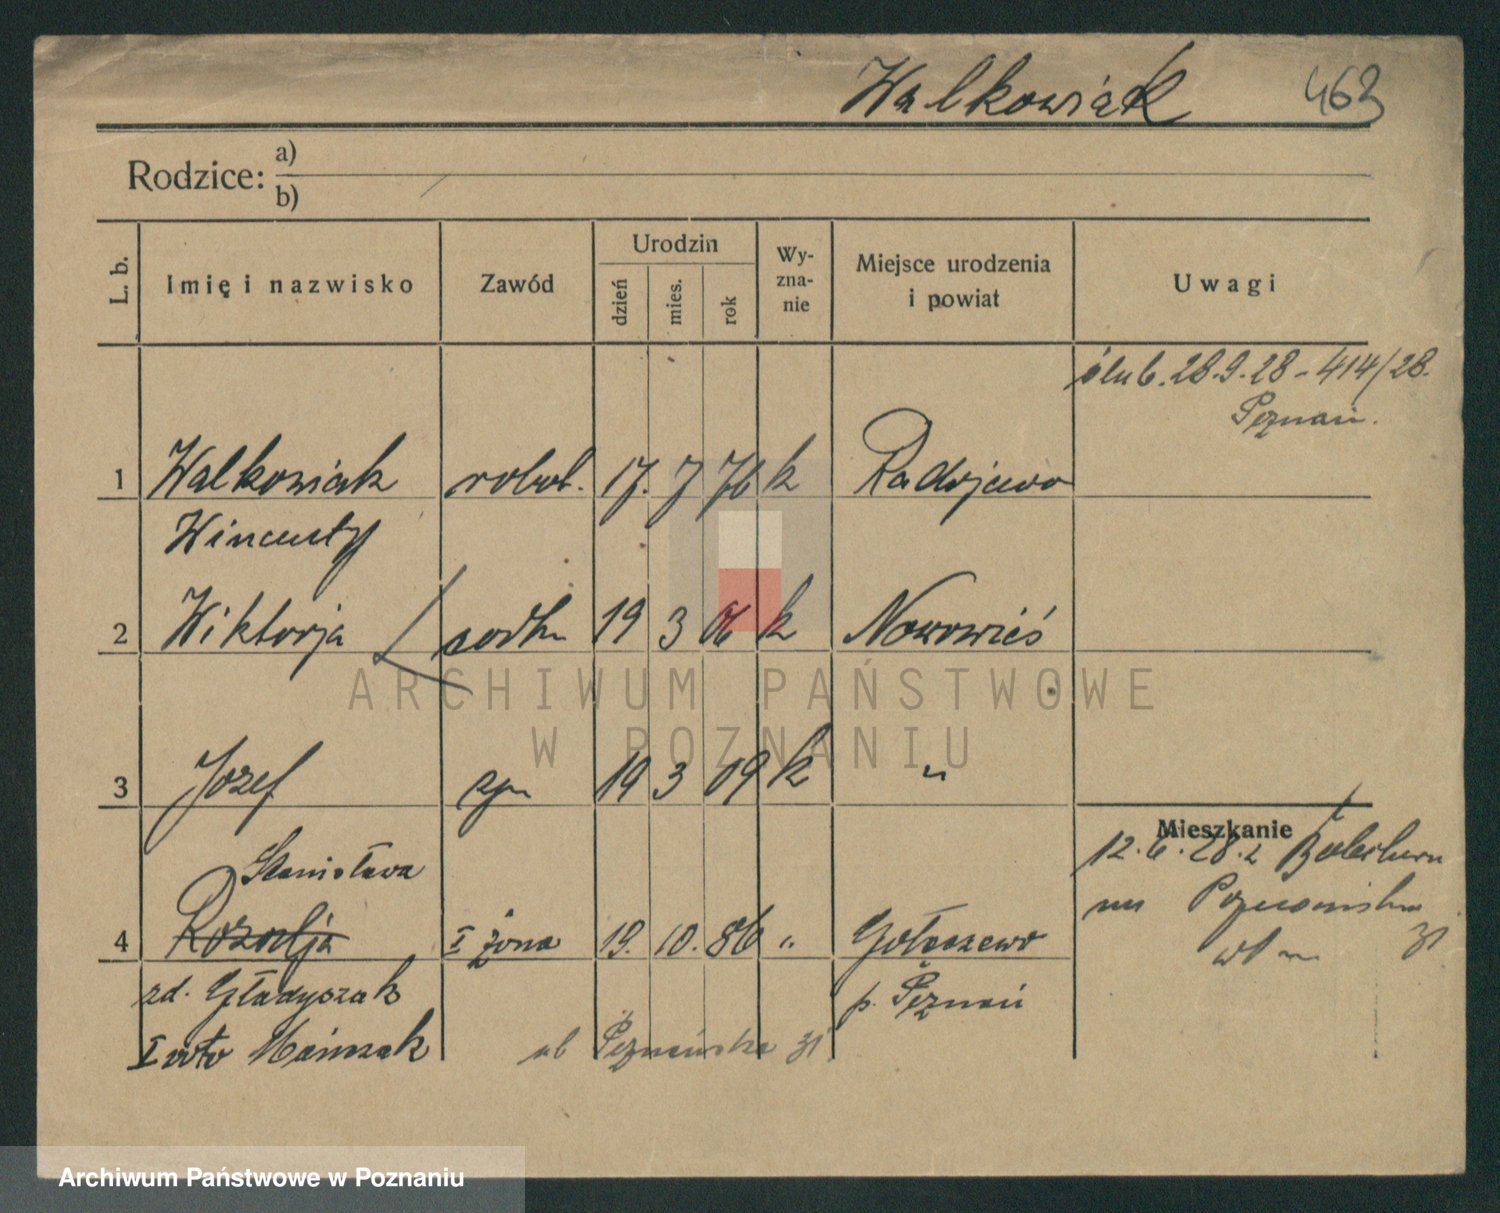 Walkowiak 463
Rodzice: a)
b)
L. b. Imię i nazwisko Zawód Urodzin dzień mies. rok Wy-zna-nie Miejsce urodzenia i powiat Uwagi
ślub. 28.9.28 - 414/28.
Poznań.
1 Walkowiak robot. 17. 7 76 k Radojewo
Wincenty
2 Wiktorja 19 3 06 k Nowowieś
ARCHIWUM PAŃSTWOWE
W POZNANIU
3 Józef syn 19 3 09 k "
Mieszkanie
Stanisława
12.6.28. z
na Poznańska
31
4 Rozalja I żona 19. 10. 86 " 
zd. Gładyszak p. Poznań
I voto ul Poznańska 31
Archiwum Państwowe w Poznaniu